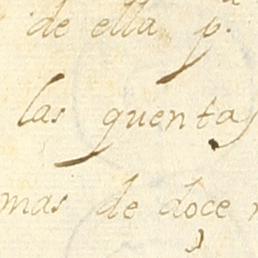 de ella p.
las quentas
mas de doçe